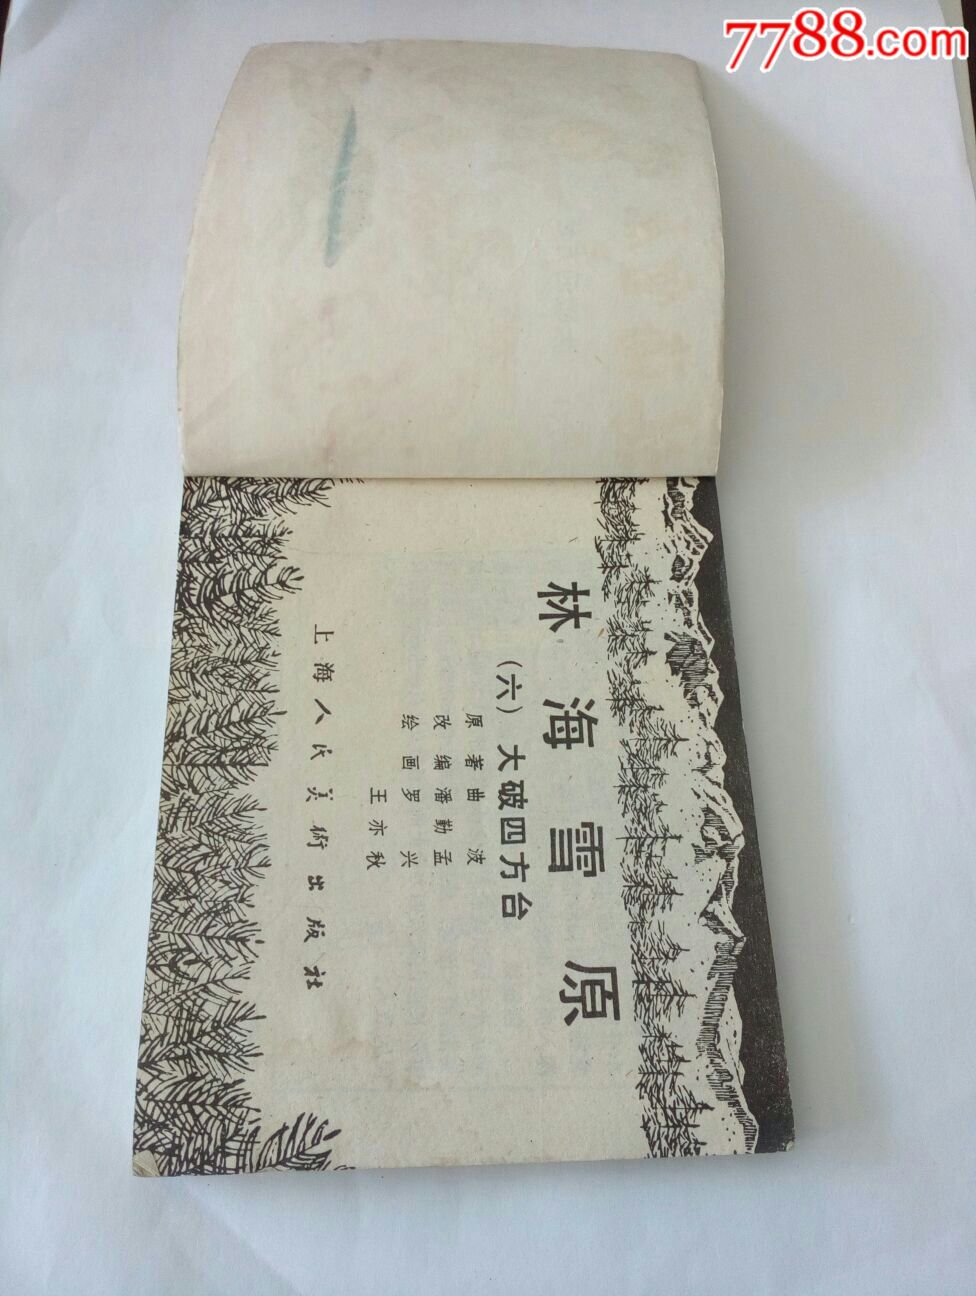 7788.com
林海雪原
(六)大破四方台
原著 曲波
改编 潘勤孟
绘画 罗兴
王亦秋
上海人民美術出版社